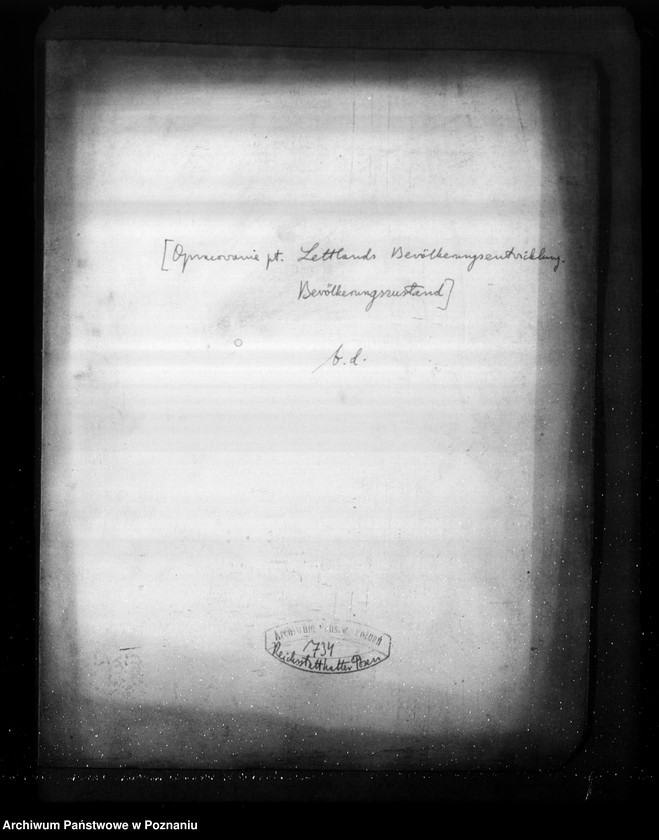 [Opracowanie pt. Lettlands Bevölkerungsentwicklung.
Bevölkerungszustand]
b.d.
1734
Reichsstatthalter Posen
Archiwum Państwowe w Poznaniu